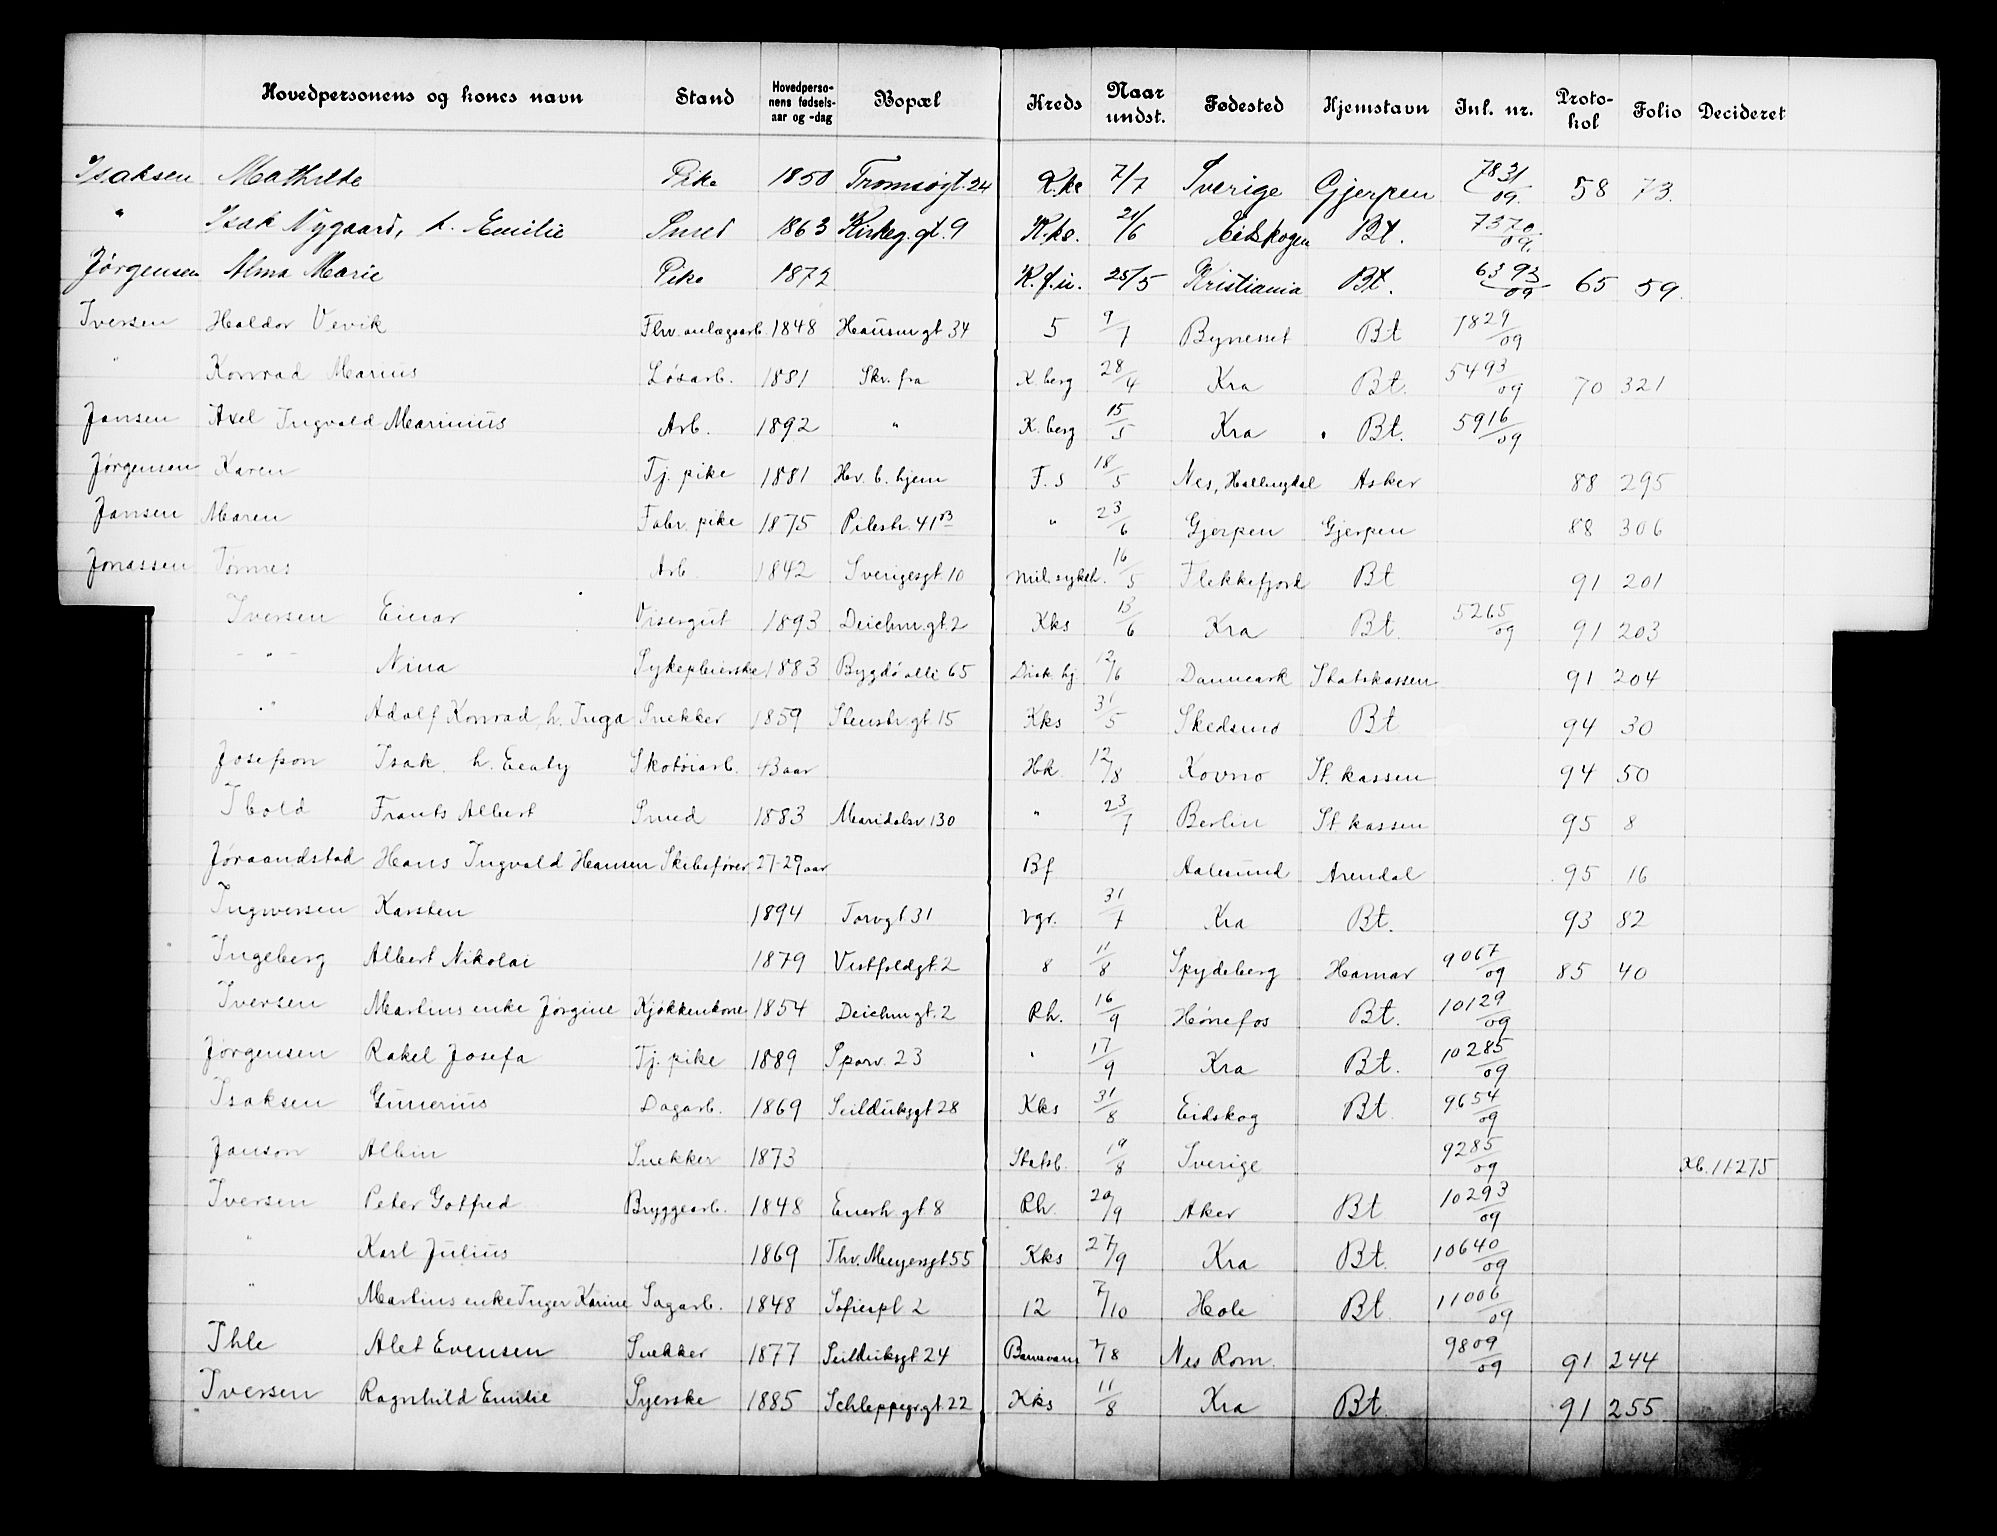 Hovedpersonens og kones navn Stand Hovedpersonens fødselsaar og -dag Bopæl Kreds Naar undst. Fødested Hjemstavn Inl. nr. Protokol Folio Decideret
Isaksen Mathilde Pike 1850 Tromsøgt. 24 K.ks 7/7 Sverige Gjerpen 7831/09. 58 73.
" Isak Nygaard, h. Emilie Smed 1863 Kirkeg.gt. 9 K.ks. 21/6 Eidskogen Bt. 7370/09.
Jørgensen Alma Marie Pike 1872 K.f.u. 25/5 Kristiania Bt. 6393/09 65 59.
Iversen Haldor Vevik Fhv. anlægsarb. 1848 Hausmgt 34 5 9/7 Bynesset Bt 7829/09
" Konrad Marius Løsarb. 1881 Skr. fra K. berg 28/4 Kra Bt. 5493/09 70 321
Jansen Axel Ingvald Marinius Arb. 1892 " K. berg 15/5 Kra Bt. 5916/09
Jørgensen Karen Tj. pike 1881 Hv. b. hjem F. s 18/5 Nes, Hallingdal Asker 88 295
Jansen Maren Fabr. pike 1875 Pilestr. 41 B " 23/6 Gjerpen Gjerpen 88 306
Jonassen Tønnes Arb 1842 Sverigesgt 10 Mil. sykeh. 16/5 Flekkefjord Bt 91 201
Iversen Einar Visergut 1893 Deichm.gt. 2 Kks 13/6 Kra Bt. 5265/09 91 203
- " - Nina Sykepleierske 1883 Bygdø alle 65 Diak. hj 12/6 Danmark Statskassen 91 204
" Adolf Konrad, h. Inga Snekker 1859 Stenstr.gt 15 Kks 31/5 Skedsmo Bt 94 30
Josefson Isak h. Skotøiarb. 43 aar Hk. 12/8 Kovno St. kassen 94 50
Ibold Frants Albert Smed 1883 Maridalsv 130 " 23/7 Berlin St kassen 95 8
Jøraandstad Hans Ingvald Hansen Skibsfører 27-29 aar Bf Aalesund Arendal 95 16
Ingwersen Karsten 1894 Torvgt 31 Vgr. 31/7 Kra Bt. 93 82
Ingeberg Albert Nikolai 1879 Vestfoldgt. 2 8 11/8 Spydeberg Hamar 9067/09 85 40
Iversen Martins enke Jørgine Kjøkkenkone 1854 Deichmgt. 2 Rh. 16/9 Hønefos Bt. 10129/09
Jørgensen Rakel Josefa Tj. pike 1889 Sporv. 23 " 17/9 Kra Bt. 10285/09
Isaksen Gunerius Dagarb. 1869 Seilduksgt 28 Kks 31/8 Eidskog Bt. 9654/09
Janson Albin Snekker 1873 Statsb. 19/8 Sverige 9285/09 Kb. 11275
Iversen Peter Gotfred Bryggearb. 1848 Enerh.gt. 8 Rh. 20/9 Aker Bt 10293/09
" Karl Julius 1869 Thv. Meyersgt 55 Kks 27/9 Kra Bt. 10640/09
" Martins enke Inger Karine Dagarb. 1848 Sofiespl 2 12 7/10 Hole Bt 11006/09
Ihle Alet Evensen Snekker 1877 Seilduksgt 24 Barnevarn 7/8 Nes Rom. 9809/09 91 244
Iversen Ragnhild Emilie Syerske 1885 Schleppegrgt. 22 Kks 11/8 Kra Bt 91 255